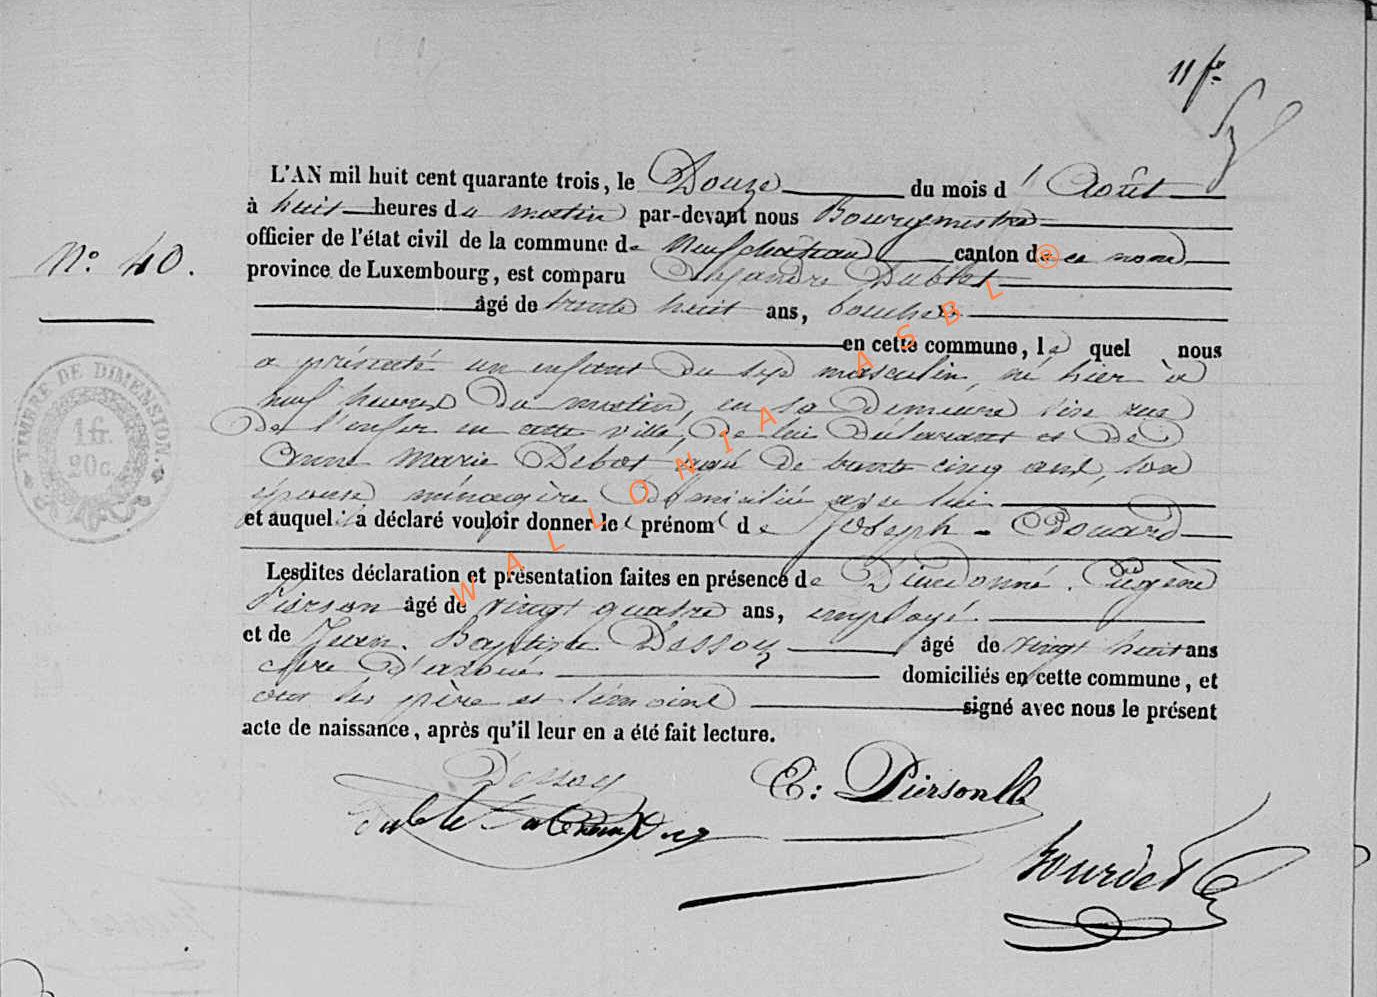 11 fo
L'AN mil huit cent quarante trois, le Douze du mois d'Août
à huit heures du matin par-devant nous Bourgmestre
officier de l'état civil de la commune de Neufchâteau canton de ce nom
N° 40.
province de Luxembourg, est comparu Alexandre Dublet
âgé de trente huit ans, boucher
en cette commune, le quel nous
a présenté un enfant du sexe masculin, né hier à
neuf heures du matin, en sa demeure sise rue
de l'enfer en cette ville, de lui déclarant et de
Anne Marie Debat âgé de trente cinq ans, son
épouse ménagère domiciliée avec lui
et auquel il a déclaré vouloir donner les prénoms de Joseph - Edouard
Lesdites déclaration et présentation faites en présence de Dieudonné Eugène
Pierson âgé de vingt quatre ans, employé
et de Jean Baptiste Dessoy âgé de vingt huit ans
clerc d'avoué domiciliés en cette commune, et
ont les père et témoins signé avec nous le présent
acte de naissance, après qu'il leur en a été fait lecture.
TIMBRE DE DIMENSION.
16.
20c.
Dessoy
E: Pierson
Bourdet
WALLONIA ASBL ®